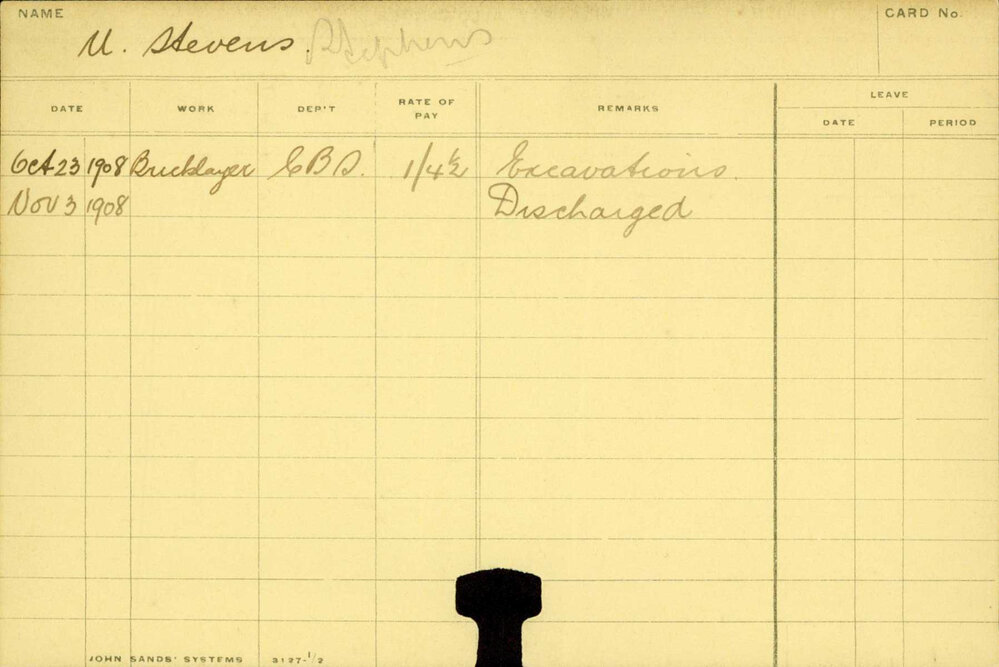 NAME
CARD No.
U. Stevens. Stephens
DATE WORK DEP'T RATE OF PAY REMARKS LEAVE
DATE PERIOD
Oct 23 1908 Bricklayer 1/4½ Excavations.
Nov 3 1908 Discharged
JOHN SANDS' SYSTEMS 3127-1/2